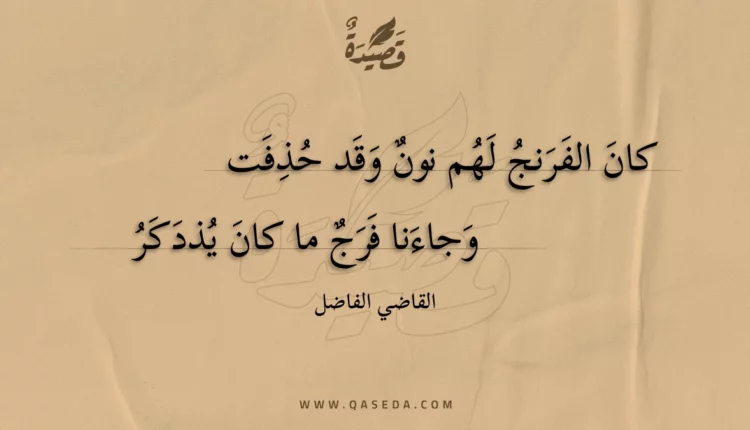 قَصِيدَةٌ
كانَ الفَرَنجُ لَهُم نونٌ وَقَد حُذِفَت
وَجاءَنا فَرَجٌ ما كانَ يُذدَكَرُ
القاضي الفاضل
WWW.QASEDA.COM